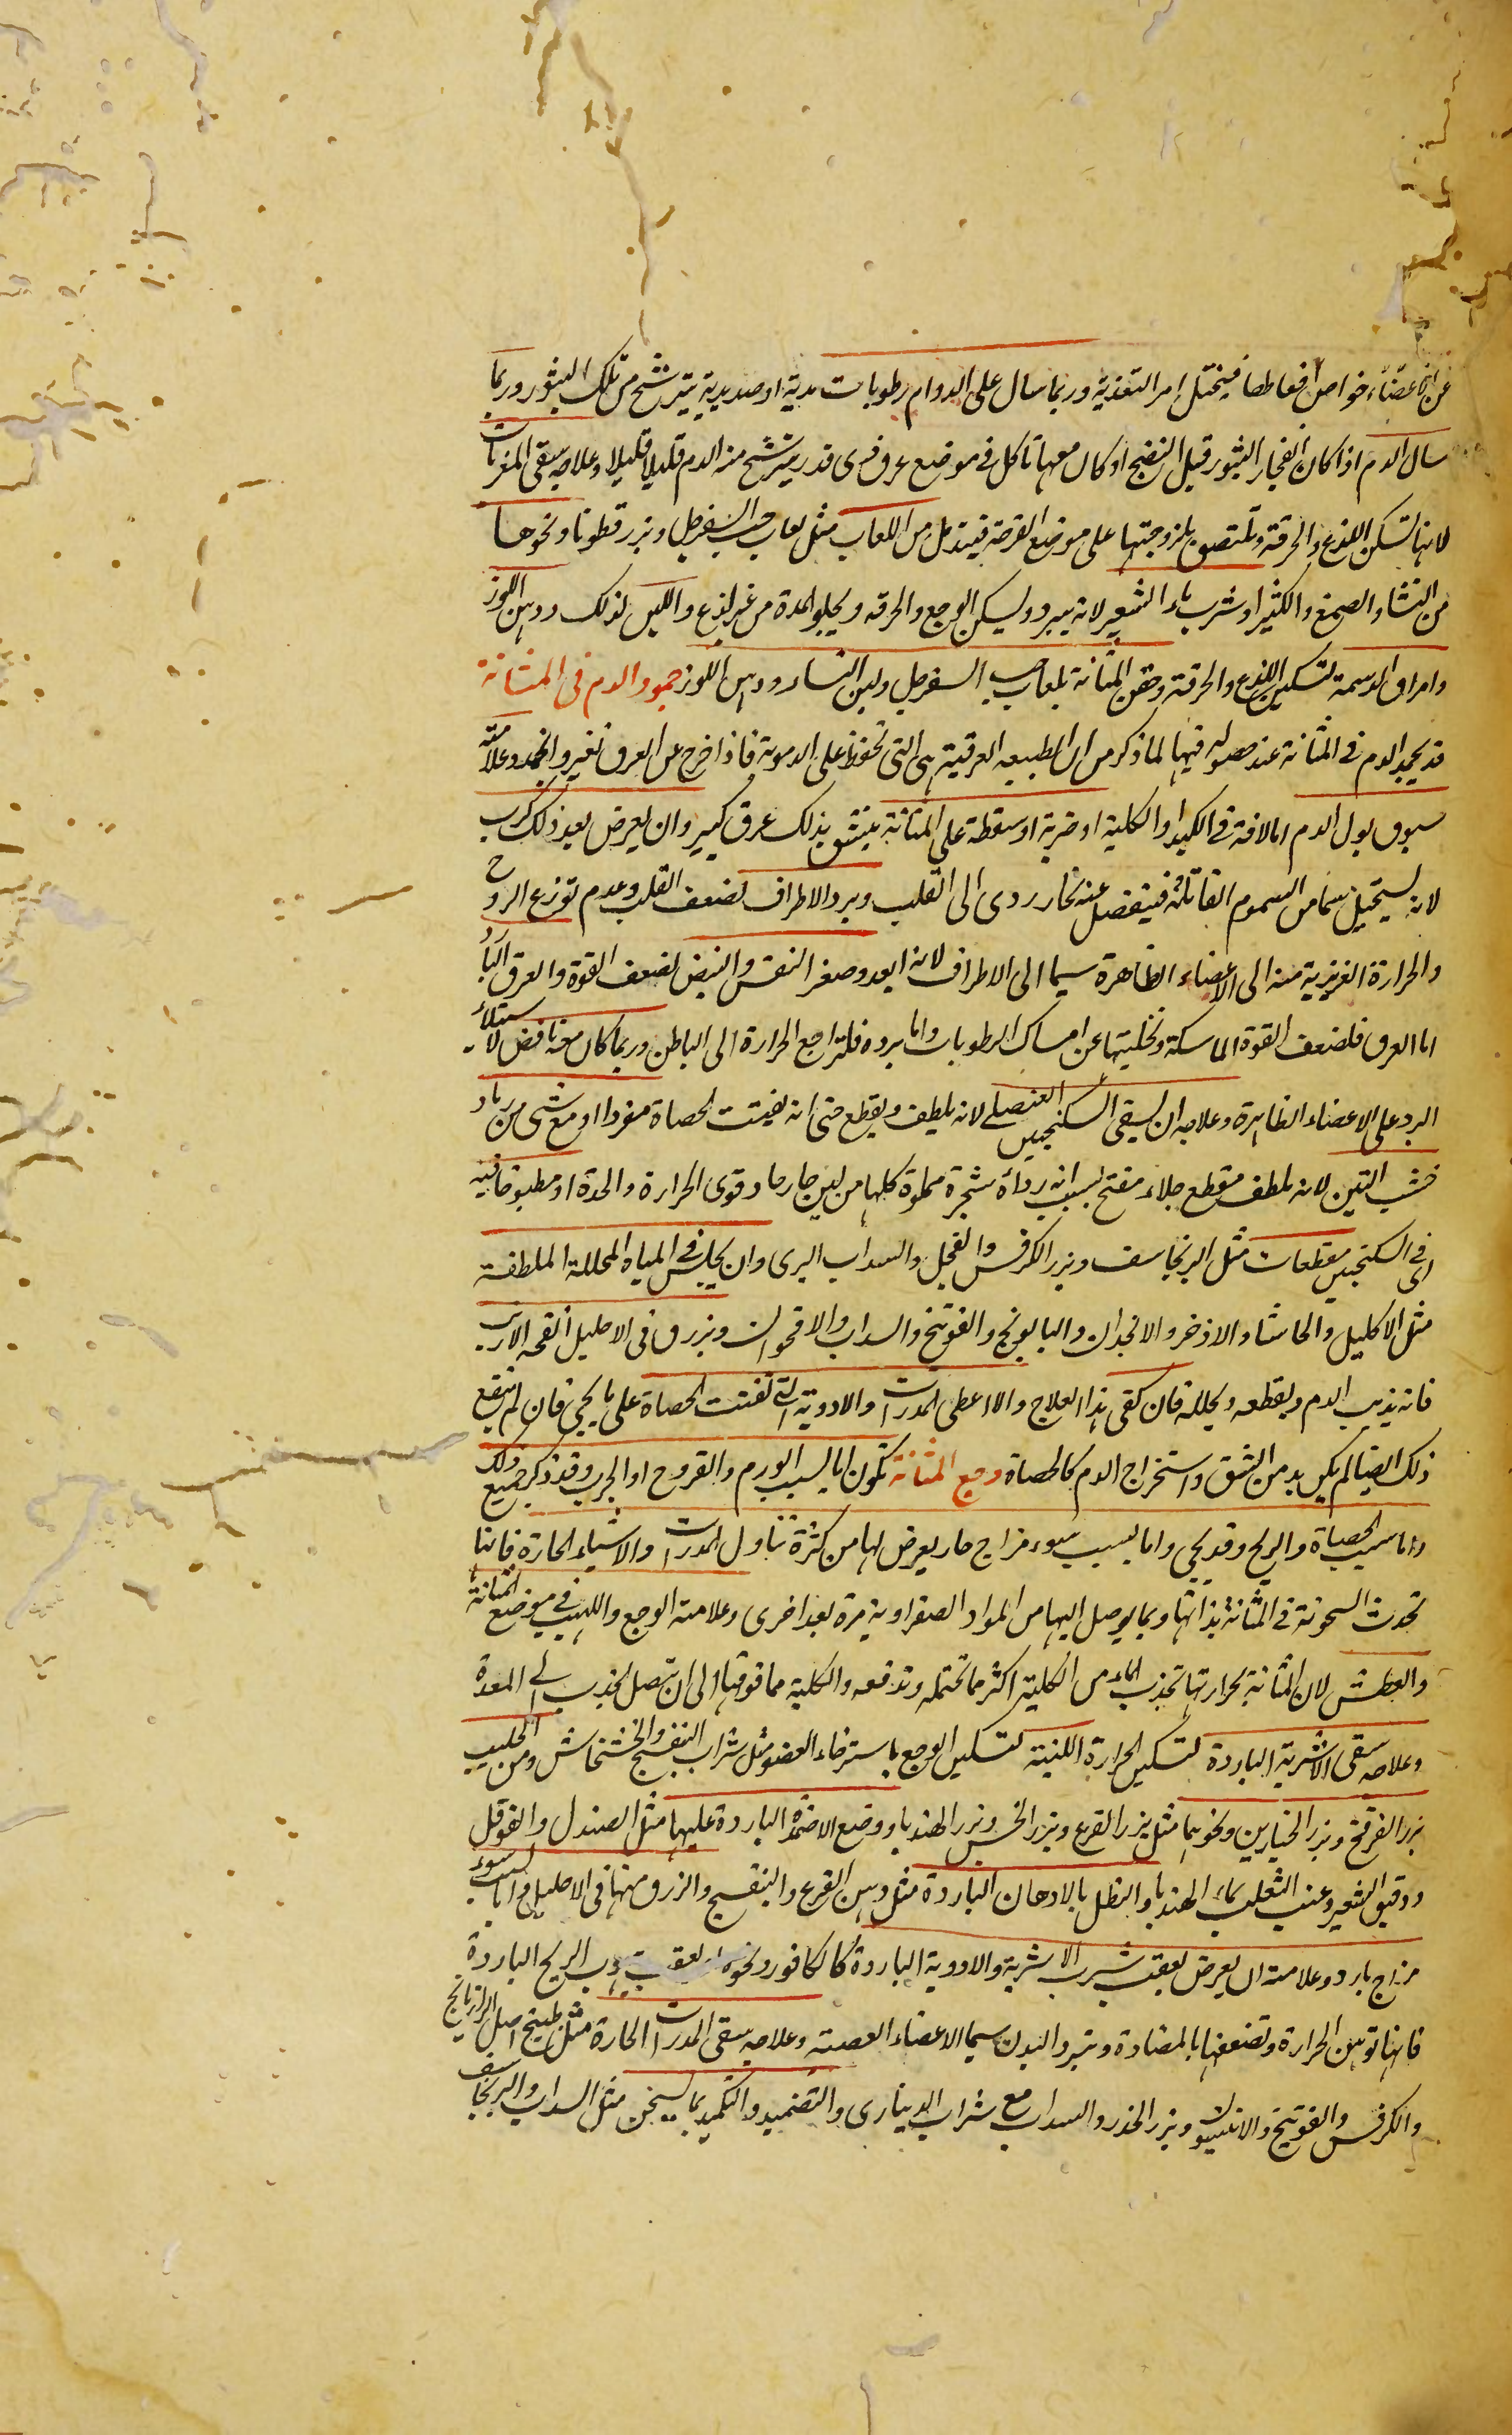 عن الاعضاء خواص افعالها فيختل امر التغذية وربما سال على الدوام رطوبات مدية او صديدية يترشح من تلك البثور وربما
سال الدم اذا كان انفجار البثور قبل النضج او كان معها تاكل فى موضع عرق فى قدر يترشح منه الدم قليلا قليلا وعلاجه سقى المغريات
لانها تسكن اللذع والحرقة وتلتصق بلزوجتها على موضع القرحة فيندمل من اللعاب مثل لعاب حب السفرجل وبزر قطونا ونحوها
من النشا والصمغ والكثيرا وشرب ماء الشعير لانه يبرد ويسكن الوجع والحرقه ويجلو المدة من غير لذع واللبن لذلك ودهن اللوز
وامراق الدسمة لتسكين اللذع والحرقة وحقن المثانة بلعاب حب السفرجل ولبن النساء ودهن اللوز جمود الدم فى المثانة
قد يجمد الدم فى المثانة عند حصوله فيها لما ذكر من ان الطبيعه العرقية هى التى تحفظ على الدموية فاذا خرج عن العرق تغير وانجمد وعلامته
سبوق بول الدم اما لافة فى الكبد او الكلية او ضربة او سقطة على المثانة ينشق بذلك عرق كبير وان يعرض بعد ذلك كرب
لانه يستحيل سما من السموم القاتلة فينفصل عنه بخار ردى الى القلب وبرد الاطراف لضعف القلب وعدم توزع الروح
والحرارة الغريزية منه الى الاعضاء الظاهرة سيما الى الاطراف لانه ابعد وصغر النفس والنبض لضعف القوة والعرق البارد
اما العرق فلضعف القوة الماسكة وتخليتها عن امساك الرطوبات واما برده فلتراجع الحرارة الى الباطن وربما كان معه نافض لاستيلاء
البرد على الاعضاء الظاهرة وعلاجه ان يسقى السكنجبين العنصلى لانه يلطف ويقطع حتى انه يفتت الحصاة مفردا او مع شى من رماد
خشب التين لانه ملطف مقطع جلاء مفتح بسبب انه رماد شجرة مملوة كلها من لبن حار حاد قوى الحرارة والحدة او مطبوخا فيه
اى فى السكنجبين مقطعات مثل البرنجاسف وبزر الكرفس والفجل والسداب البرى وان يجلس فى المياه المحللة الملطفة
مثل الاكليل والحاشا والاذخر والانجدان والبابونج والفوتنج والسداب والاقحوان ويزرق فى الاحليل انفحه الارنب
فانه يذيب الدم ويقطعه ويحلله فان كفى هذا العلاج والا اعطى المدرات والادوية التى تفتت الحصاة على ما يجى فان لم ينفع
ذلك ايضا لم يكن بد من الشق واستخراج الدم كالحصاة وجع المثانة تكون اما بسبب الورم والقروح او الجرب وقد ذكر جميع ذلك
واما بسبب الحصاة والريح وقد يجى واما بسبب سوء مزاج حار يعرض لها من كثرة تناول المدرات والاشياء الحارة فانها
تحدث السخونة فى المثانة بذاتها وبما يوصل اليها من المواد الصفراوية مرة بعد اخرى وعلامته الوجع واللهيب فى موضع المثانة
والعطش لان المثانة بحرارتها تجذب الماء من الكلية اكثر مما تحتمله وتدفعه والكلية مما فوقها الى ان يتصل الجذب الى المعدة
وعلاجه سقى الاشربة الباردة لتسكين الحرارة اللينة لتسكين الوجع باسترخاء العضو مثل شراب البنفسج والخشخاش ومن الحليب
بزر الفرفخ وبزر الخيارين ونحوهما مثل بزر القرع وبزر الخس وبزر الهندبا ووضع الاضمدة الباردة عليها مثل الصندل والفوفل
ودقيق الشعير وعنب الثعلب بماء الهندبا والنطل بالادهان الباردة مثل دهن القرع والبنفسج والزرق منها فى الاحليل واما بسبب سوء
مزاج بارد وعلامته ان يعرض بعقب شرب الاشربة والادوية الباردة كالكافور ونحوه او بعقب هبوب الريح الباردة
فانها توهن الحرارة وتضعفها بالمضادة وتبرد البدن سيما الاعضاء العصبة وعلاجه سقى المدرات الحارة مثل طبيخ اصل الرازيانج
والكرفس والفوتنج والانيسون وبزر الجزر والسداب مع شراب الدينارى والتضميد والتكميد بما يسخن مثل السداب والبرنجاسف